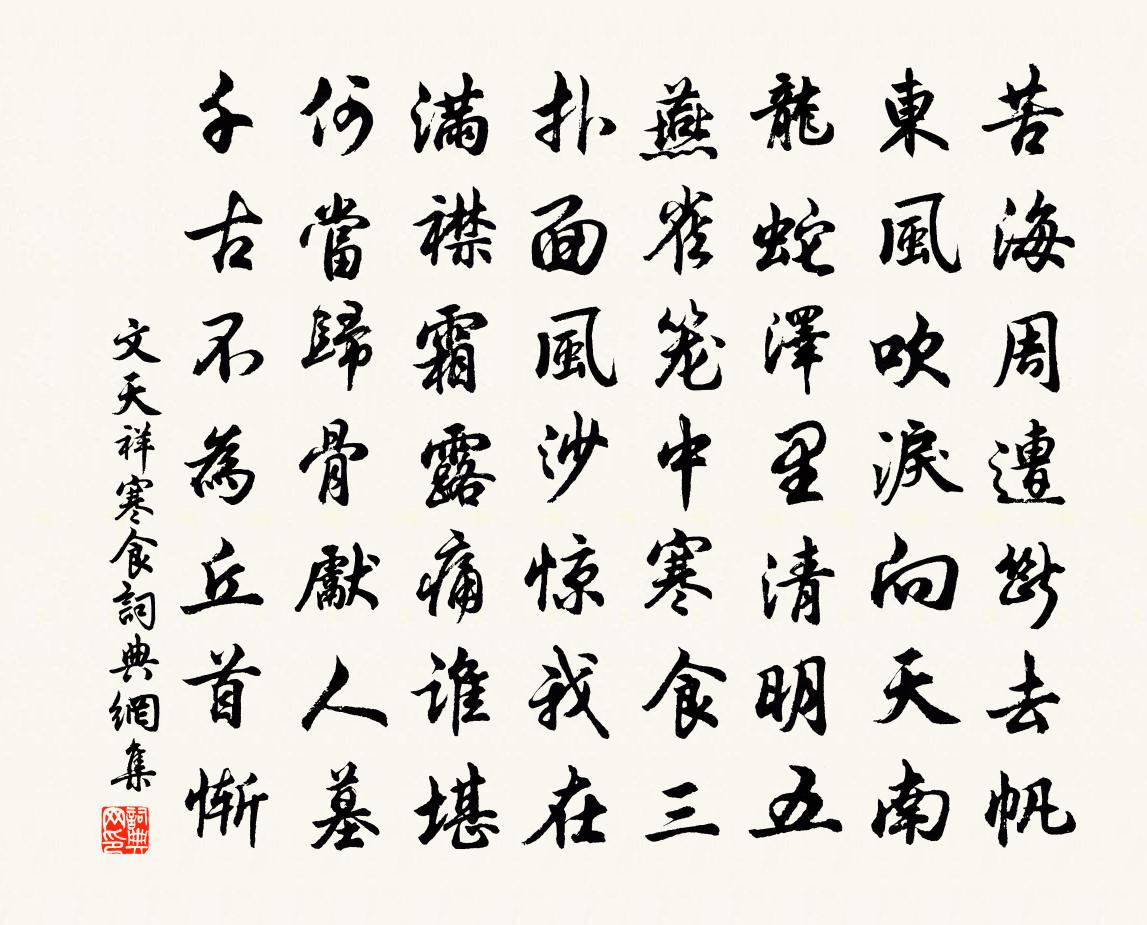 苦海周遭斷去帆
東風吹淚向天南
龍蛇澤里清明五
燕雀笼中寒食三
扑面風沙惊我在
满襟霜露痛谁堪
何當歸骨獻人墓
千古不為丘首惭
文天祥寒食詞典網集
詞典网印